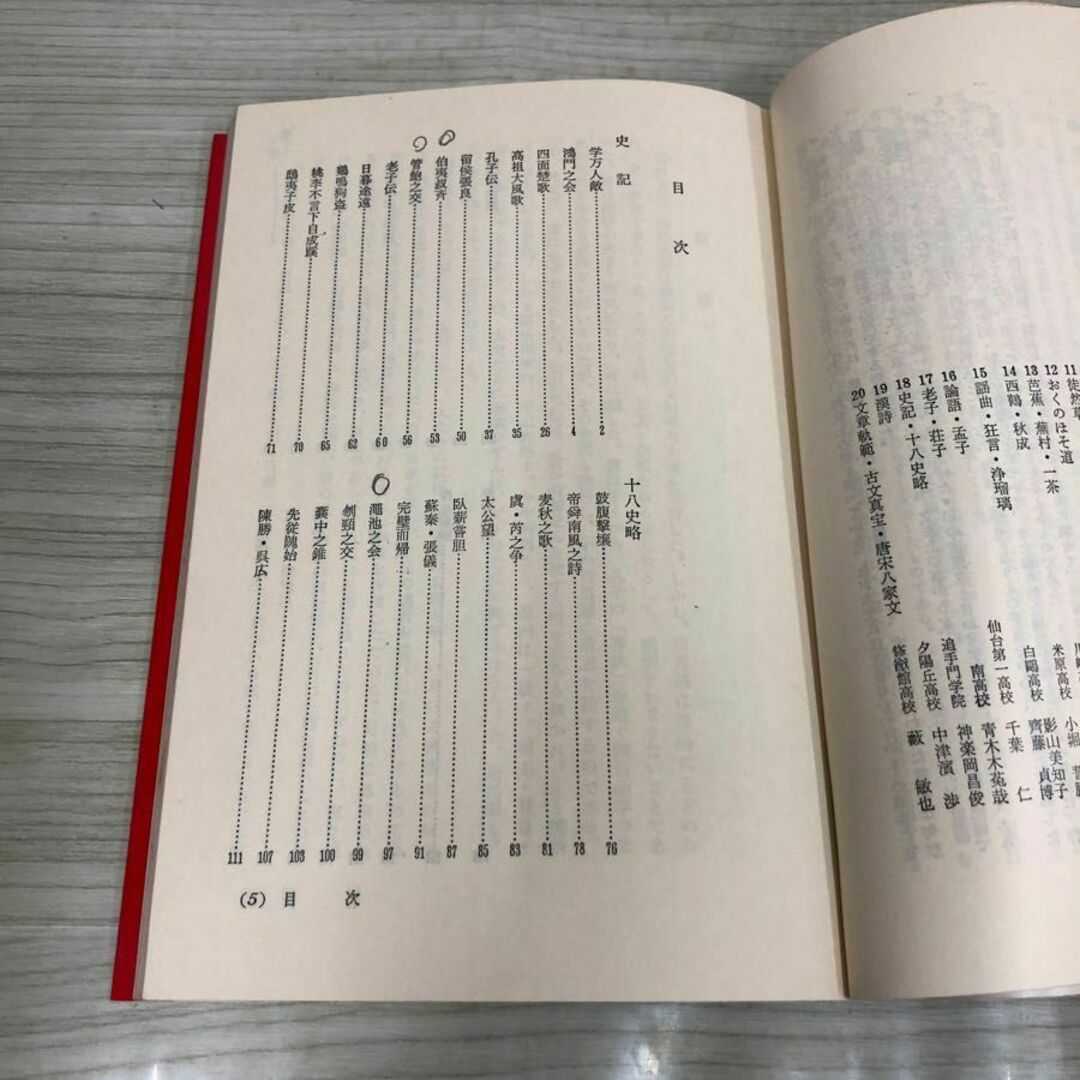 11徒然草
12おくのほそ道
13芭蕉・蕪村・一茶 米原高校 影山美知子
14西鶴・秋成 白鷗高校 齊藤貞博
15謡曲・狂言・浄瑠璃 仙台第一高校 千葉仁
16論語・孟子 南高校 青木木菟哉
17老子・荘子 追手門学院 神楽岡昌俊
18史記・十八史略 夕陽丘高校 中津濱渉
19漢詩 修猷館高校 藪敏也
20文章軌範・古文真宝・唐宋八家文
目次
史記
学万人敵 2
鴻門之会 4
四面楚歌 26
高祖大風歌 35
孔子伝 37
留侯張良 50
伯夷叔斉 53
管鮑之交 56
老子伝 60
日暮途遠 62
鶏鳴狗盗 65
桃李不言下自成蹊 70
鴟夷子皮 71
十八史略
鼓腹撃壌 76
帝舜南風之詩 78
麦秋之歌 81
虞・芮之争 83
太公望 85
臥薪嘗胆 87
蘇秦・張儀 91
完璧而帰 97
澠池之会 99
刎頸之交 100
囊中之錐 103
先従隗始 107
陳勝・呉広 111
(5) 目次